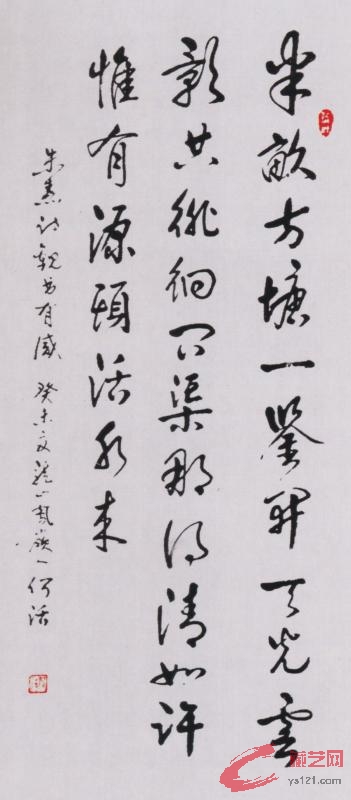 半畝方塘一鑒開天光雲
影共徘徊问渠那得清如许
惟有源頭活水来
朱熹诗观书有感 癸未 何活
艺网
ys121.com